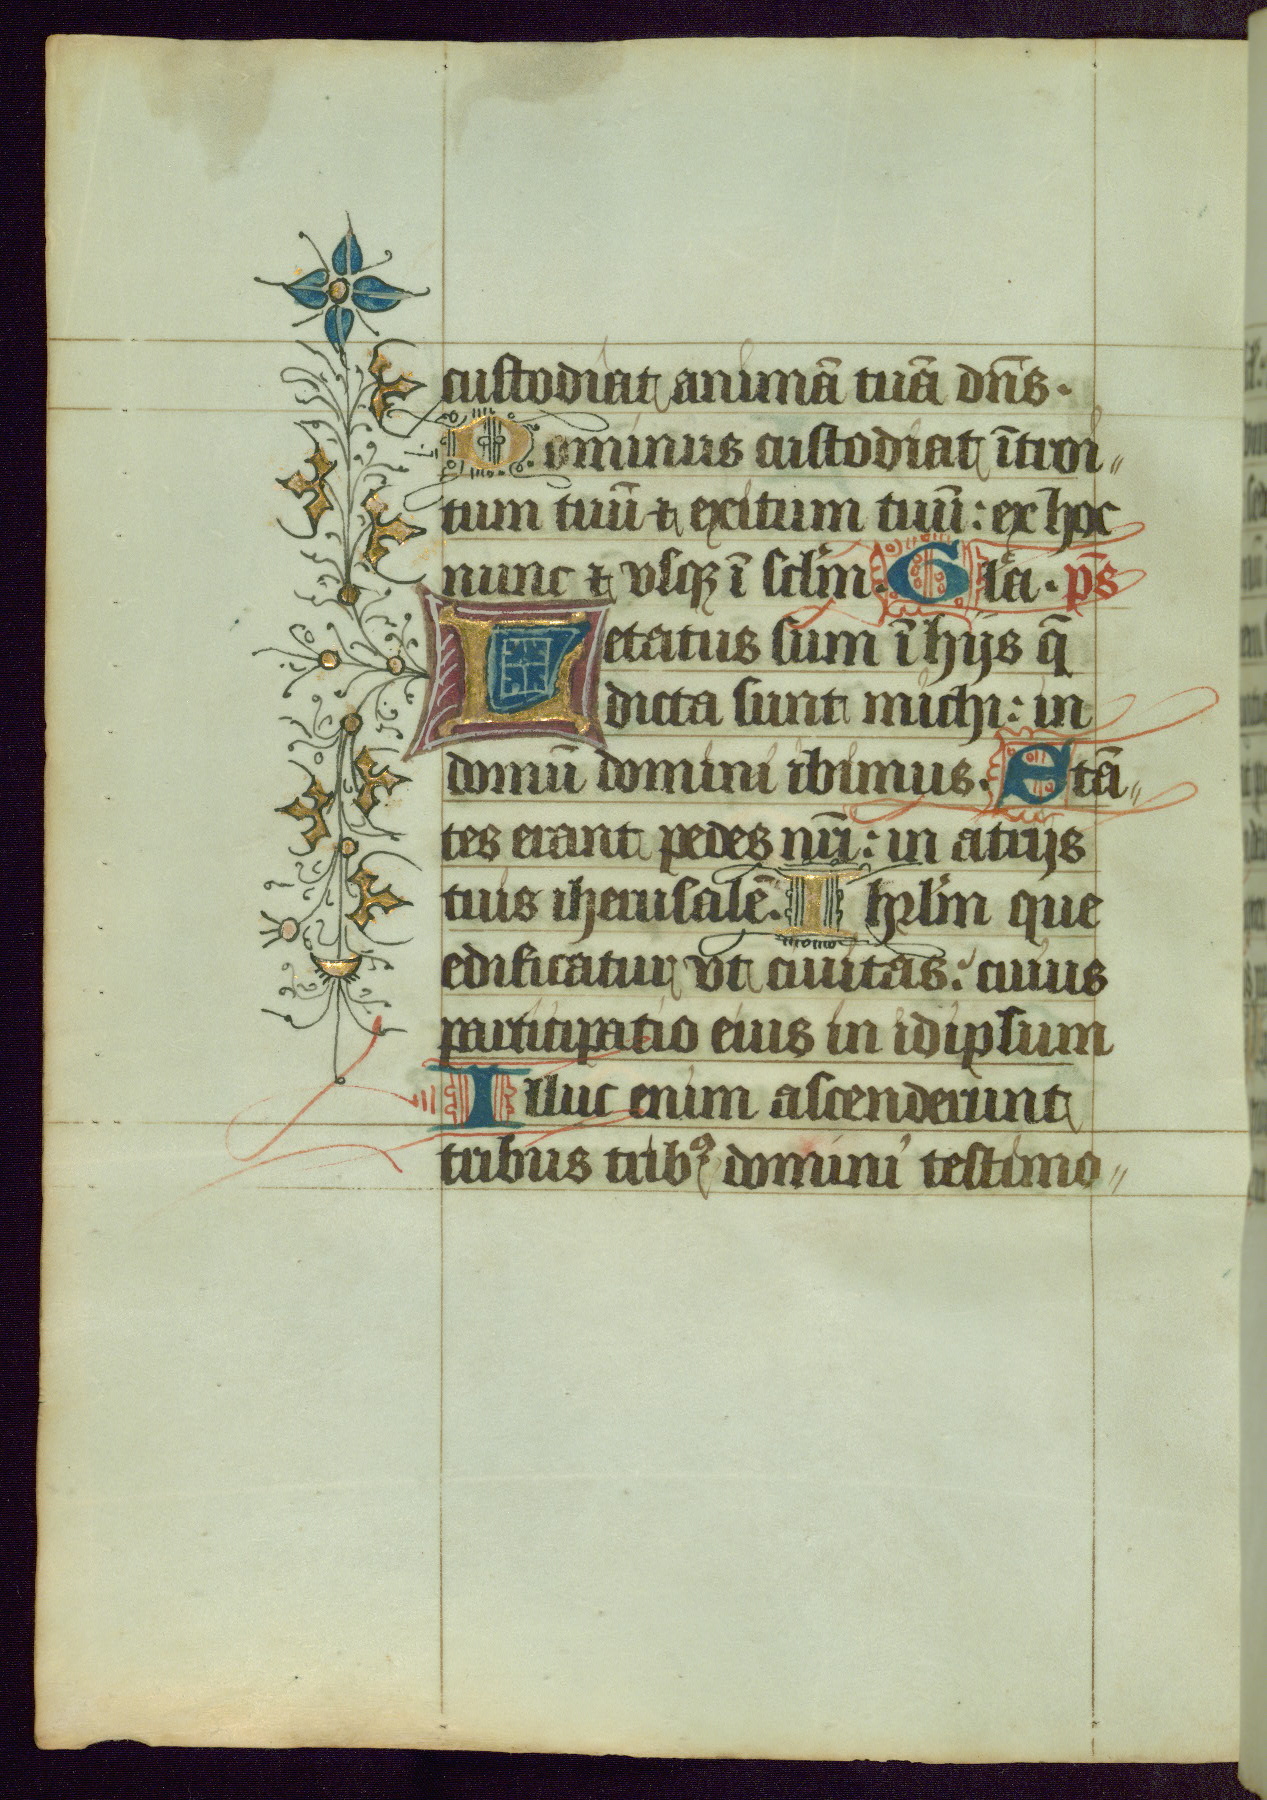 custodiat animā tuā dn̄s.
Dominus custodiat ītroi〃
tum tuū ⁊ exitum tuū: ex hoc
nunc ⁊ vsqꝫ ī sclm̄. Gla̅. ps̄
Letatus sum ī hijs q̄
dicta sunt michi: in
domū domini ibimus. Stā〃
tes erant pedes nr̄i: in atrijs
tuis iherusalē. Ihrlm̄ que
edificatur vt ciuitas: cuius
participatio eius in idipsum
Illuc enim ascenderunt
tribus tribꝰ domini testimo〃